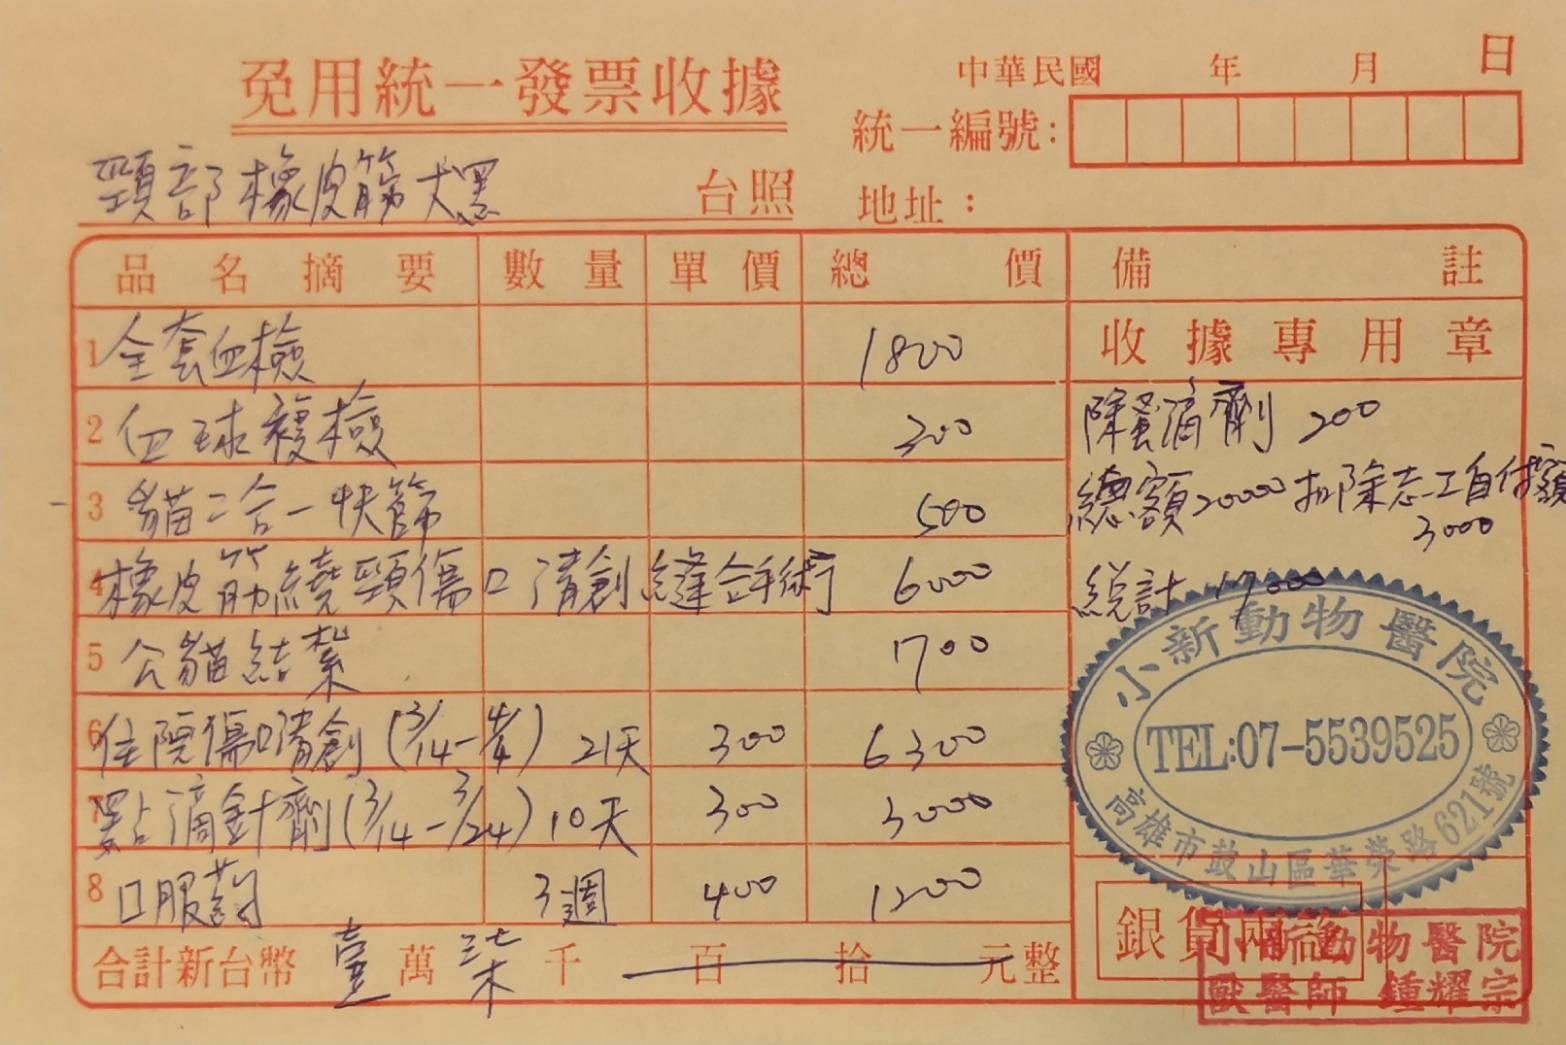 免用統一發票收據
中華民國 年 月 日
統一編號:
頸部橡皮筋大黑 台照
地址:
品名摘要 數量 單價 總價 備註
收據專用章
1 全套血檢 1800
2 血球複檢 300
3 貓二合一快篩 500
4 橡皮筋繞頸傷口清創縫合手術 6000
5 公貓結紮 1700
6 住院傷口清創 (3/14-4/4) 21天 300 6300
7 點滴針劑(3/14-3/24) 10天 300 3000
8 口服葯 3週 400 1200
除蚤滴劑 200
總額20000扣除志工自付額
3000
總計 17000
小新動物醫院
TEL:07-5539525
高雄市鼓山區華榮路621號
合計新台幣 壹 萬 柒 千 百 拾 元整
銀貨兩訖
小新動物醫院
獸醫師 鍾耀宗